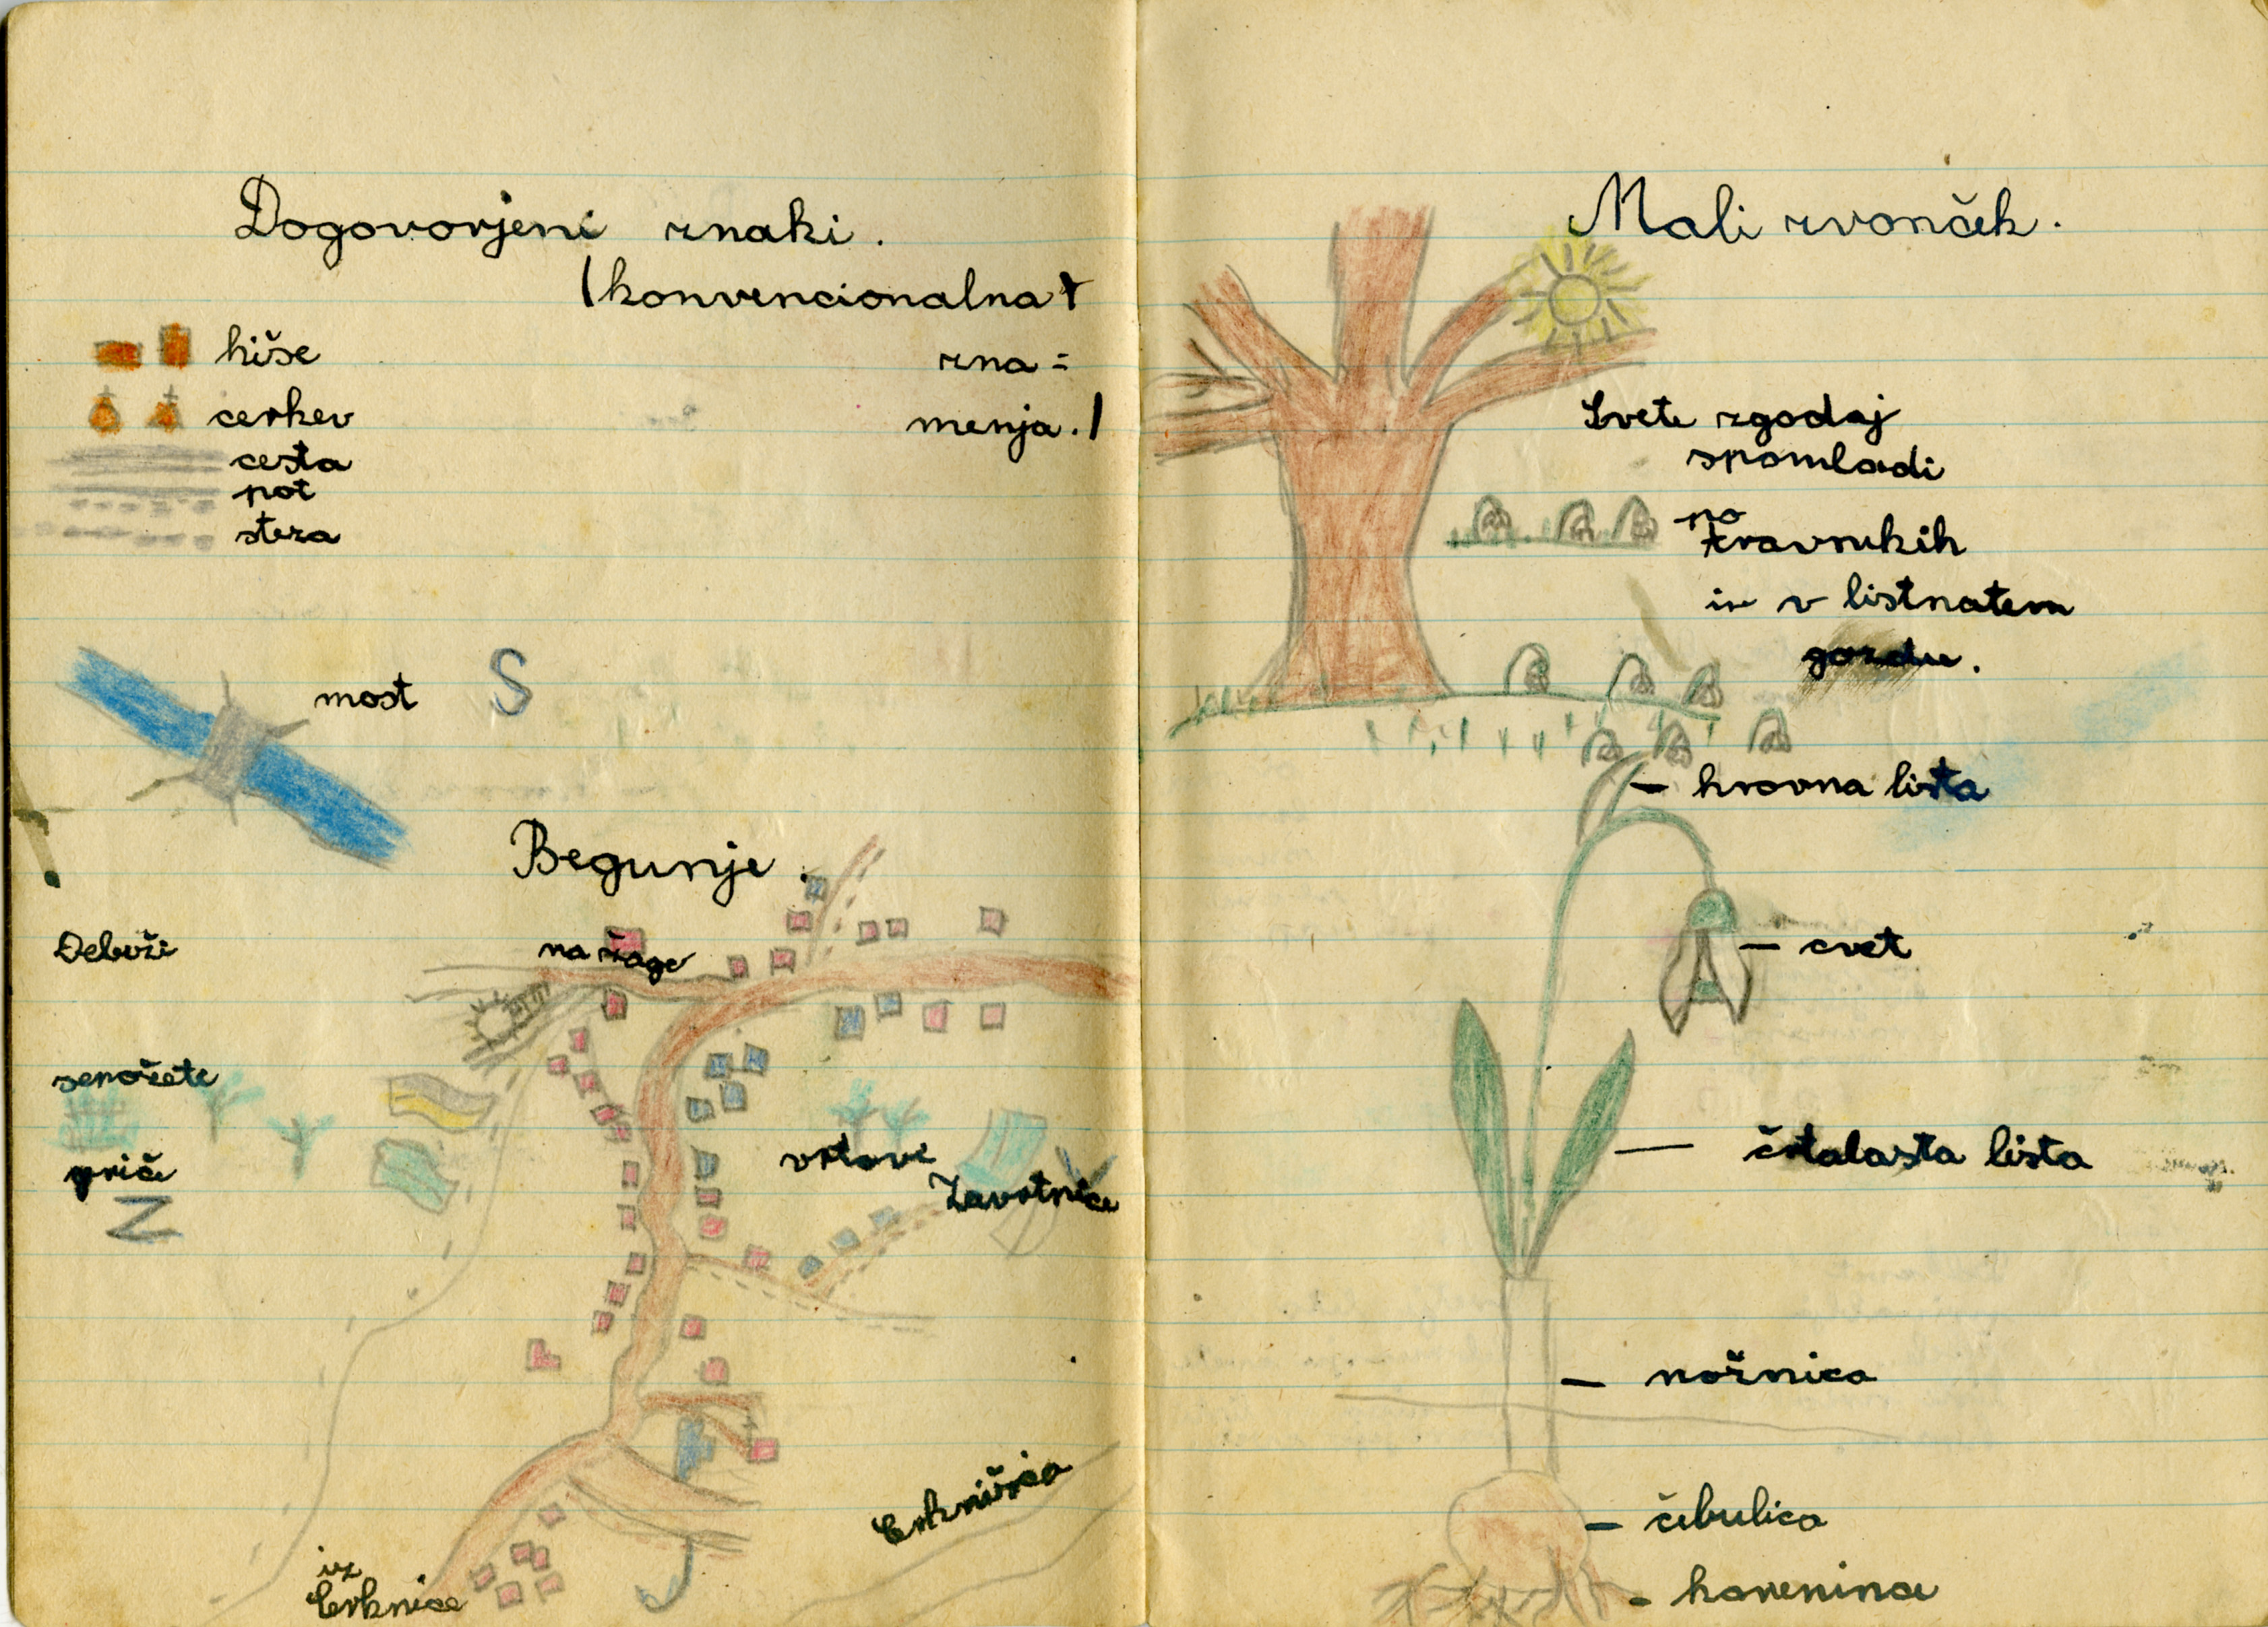 Dogovorjeni znaki.
(konvencionalna
zna=
menja.)
hiše
cerkev
cesta
pot
steza
most
S
Begunje.
Debuži
na žage
senožete
vrtove
griče
Z
Cerkniščica
iz
Cerknice
J
Mali zvonček.
Cvete zgodaj
spomladi
po
travnikih
in v listnatem
gozdu.
- krovna lista
- cvet
- črtalasta lista
- nožnica
- čebulica
- korenince